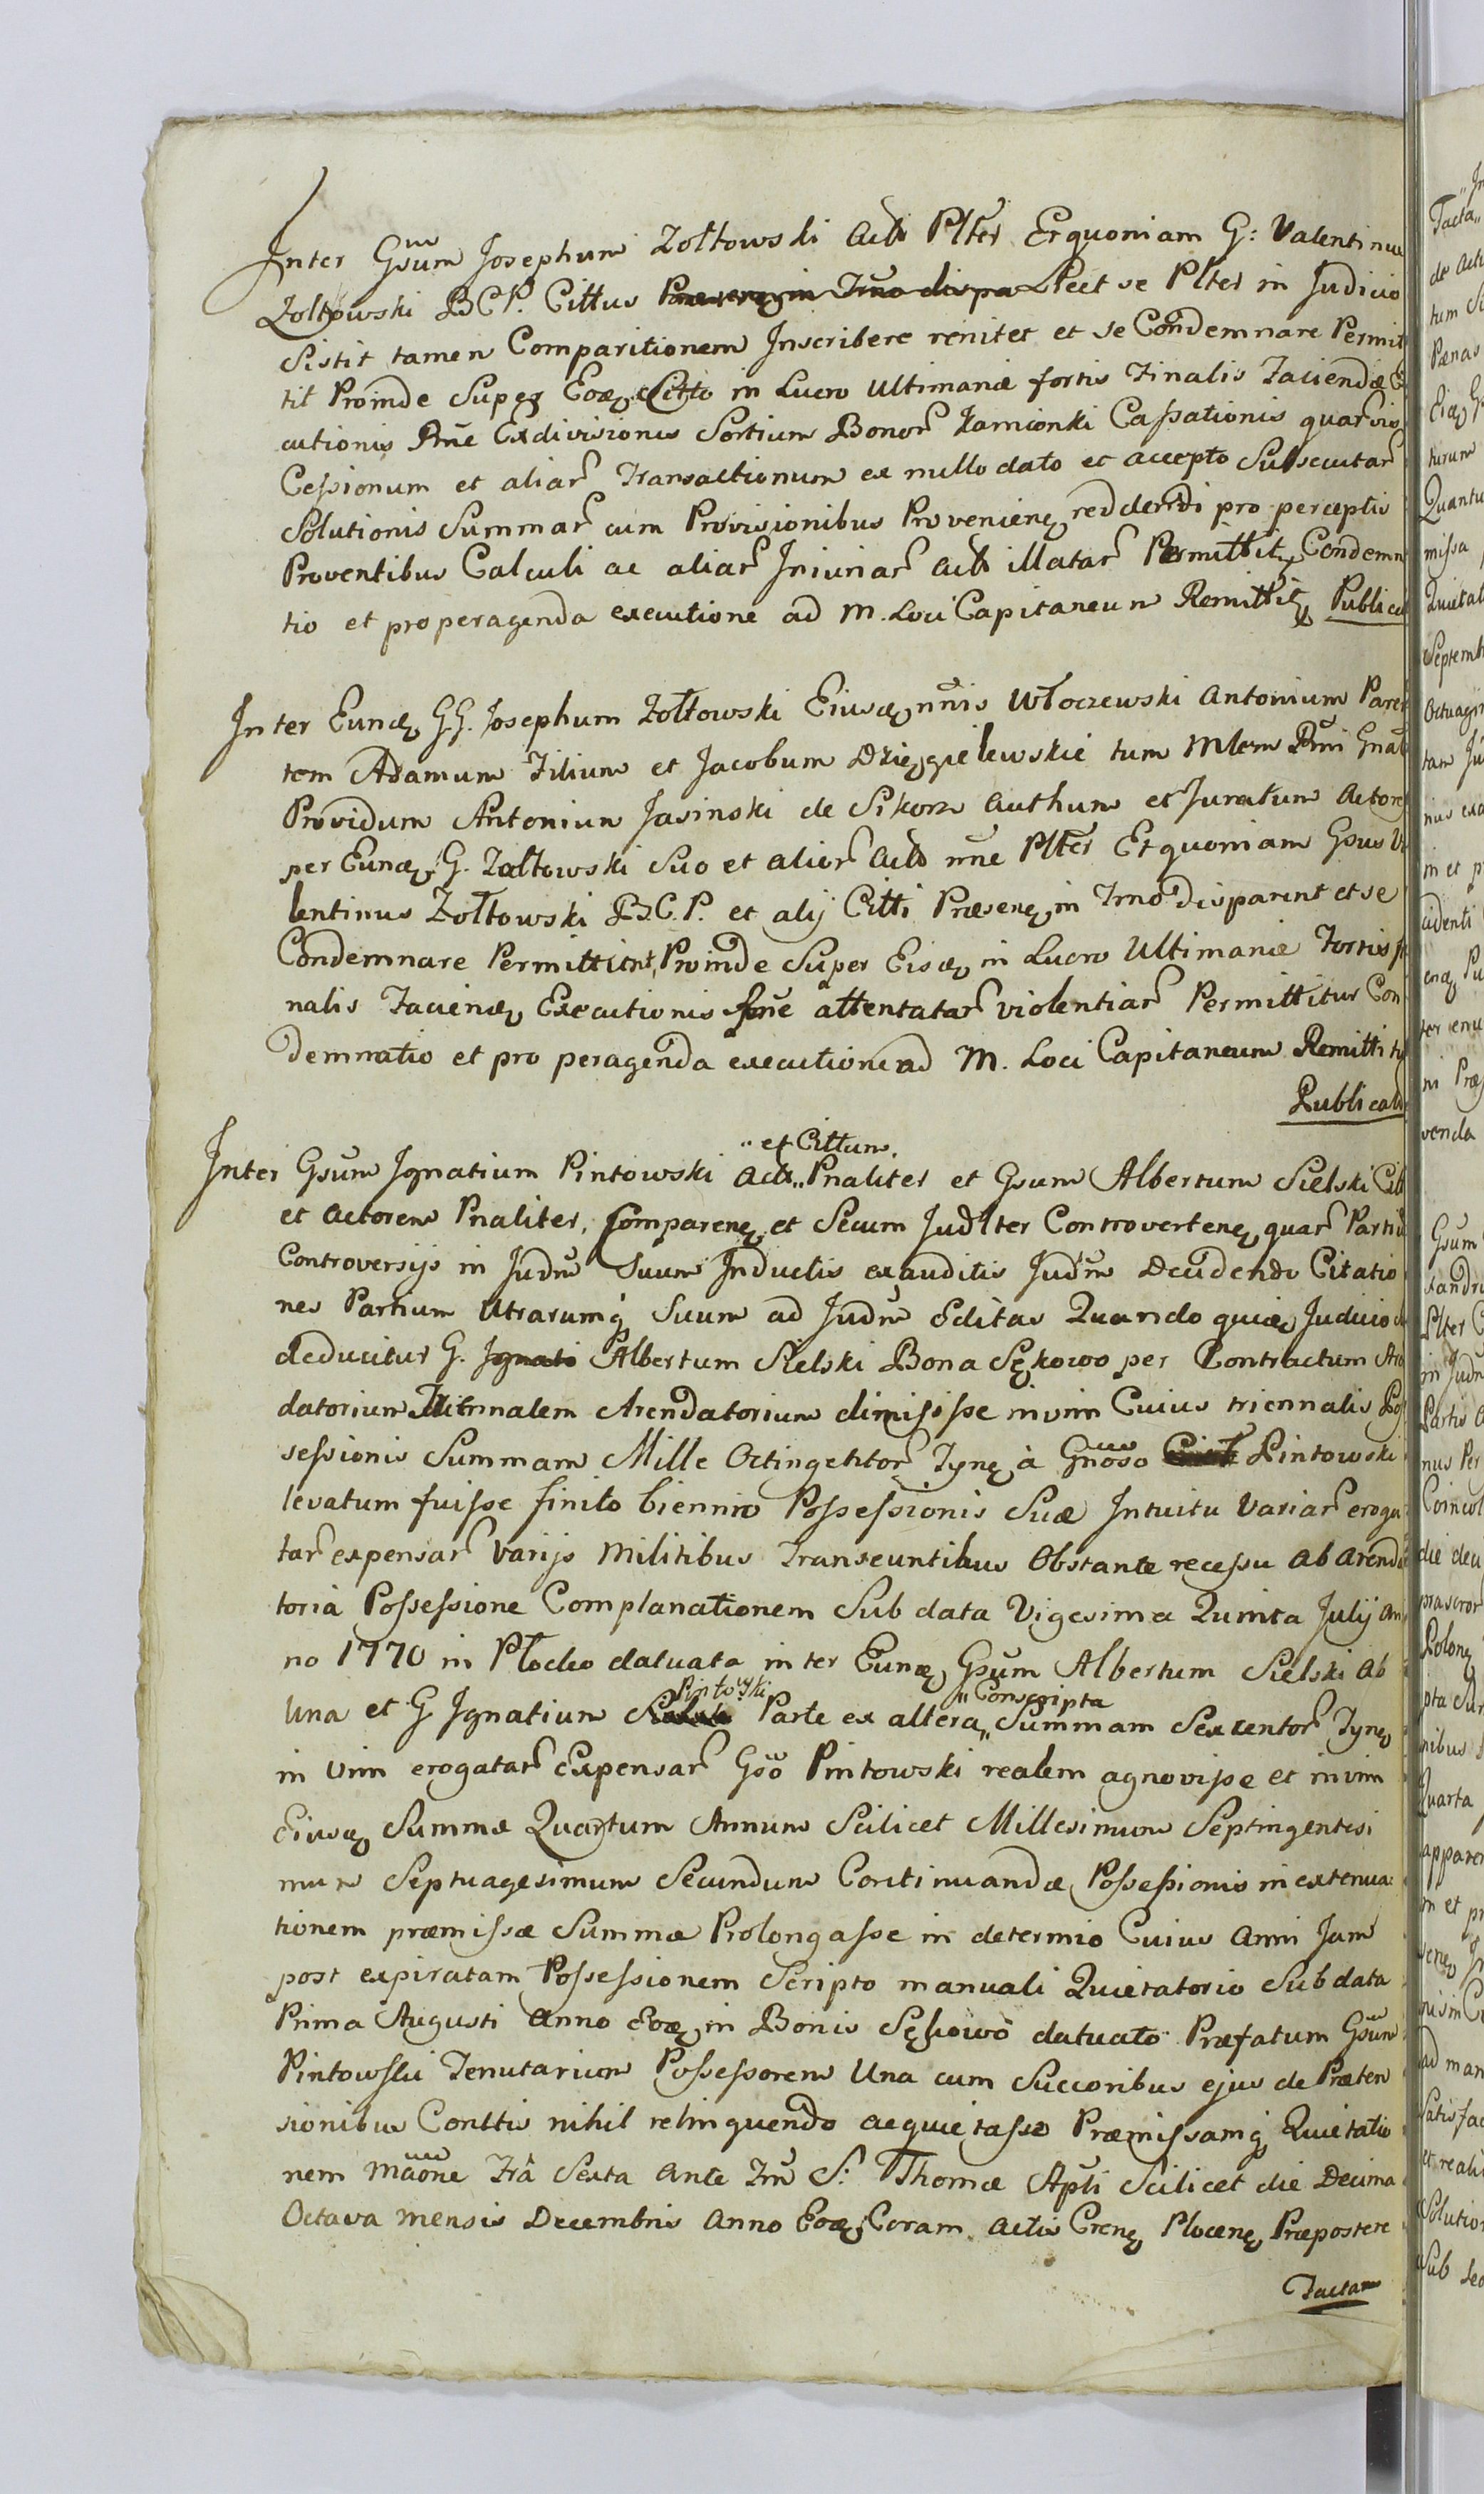 Inter Gsum Josephum Zołtowski Acto Plter Et quoniam G: Valentinus
Zołtowski B C P. Cittus Praeseng in Trno dispa Licet se Plter in Judicio
Sistit tamen Comparitionem Inscribere renitet et se Condemnare Permit
tit Proinde Super Eoq Citto in Lucro Ultimariæ fortis Finalis Faciendæ
cutionis Rne Exdivisionis Sortium Bonor Kamionki Cassationis quarvis
Cessionum et aliar Transactionum ex nullo dato et accepto Subsecutar
Solutionis Summar cum Provisionibus Provenieng reddendi pro perceptis
Proventibus Calculi ac aliar Iniuriar Acto illatar Permittitq Condemn
tio et pro peragenda executione ad M. Loci Capitaneum Remittitq Publicat
Inter Eundq GG. Josephum Zołtowski Eiusdq nnis Włoczewski Antonium Paren
tem Adamum Filium et Jacobum Dzięgielewskie tum Mlem Rni Gnal
Providum Antonium Jasinski de Sikorz Authum et Juratum Actores
per Eundq G. Zołtowski Suo et alior Acto nne Plter Et quoniam Gsus Va
lentinus Zołtowski B.C.P. et alij Citti Præseng in Trno disparent et se
Condemnare Permittunt, Proinde Super Eisdq in Lucro Ultimariæ Fortis fi
nalis Faciendq Executionis Rne attentatar violentiar Permittitur Con
demnatio et pro peragenda executione ad M. Loci Capitaneum Remittitq
Publicat
Inter Gsum Ignatium Pintowski Acto „ et Cittum Pnaliter et Gsum Albertum Sielski Citt
et Actorem Pnaliter, Compareng et Secum Judlter Controverteng quar Partiu
Controversijs in Judm Suum Inductis exauditis Judm Decidendo Citatio
nes Partium Utrarumq Suum ad Judm Editas Quandoquidq Judicio
deducitur G. Ignati Albertum Sielski Bona Sękowo per Contractum Are
datorium Triennalem Arendatorium dimisisse in vim Cuius triennalis Pos
sessionis Summam Mille Octingentor Tyng à Gnoso Pintowski
levatum fuisse finito biennio Possessionis Suæ Intuitu Variar eroga
tar expensar Varijs Militibus Transeuntibus Obstante recessu ab Arenda
toria Possessione Complanationem Sub data Vigesima Quinta Julij An
no 1770 in Plocko datuata inter Eundq Gsum Albertum Sielski Ab
Una et G Ignatium Pintowski Parte ex altera „ Conscripta Summam Sexcentor Tyng
in Vim erogatar Expensar Gso Pintowski realem agnovisse et in vim
Eiusdq Summæ Quartum Annum Scilicet Millesimum Septingentesi
mum Septuagesimum Secundum Continuandæ Possessionis in extenua
tionem præmissæ Summæ Prolongasse in determio Cuius Anni Jam
post expiratam Possessionem Scripto manuali Quietatorio Sub data
Prima Augusti Anno Eodq in Bonis Sękowo datuato Præfatum Gsum
Pintowski Tenutarium Possessorem Una cum Succoribus ejus de Præten
sionibus Conttis nihil relinquendo acquietasse Præmissamq Quietatio
nem Maone Fra Sexta Ante Fm S: Thomæ Apli Scilicet die Decima
Octava mensis Decembris Anno Eodq Coram Actis Creng Ploceng Præpostere
Factam